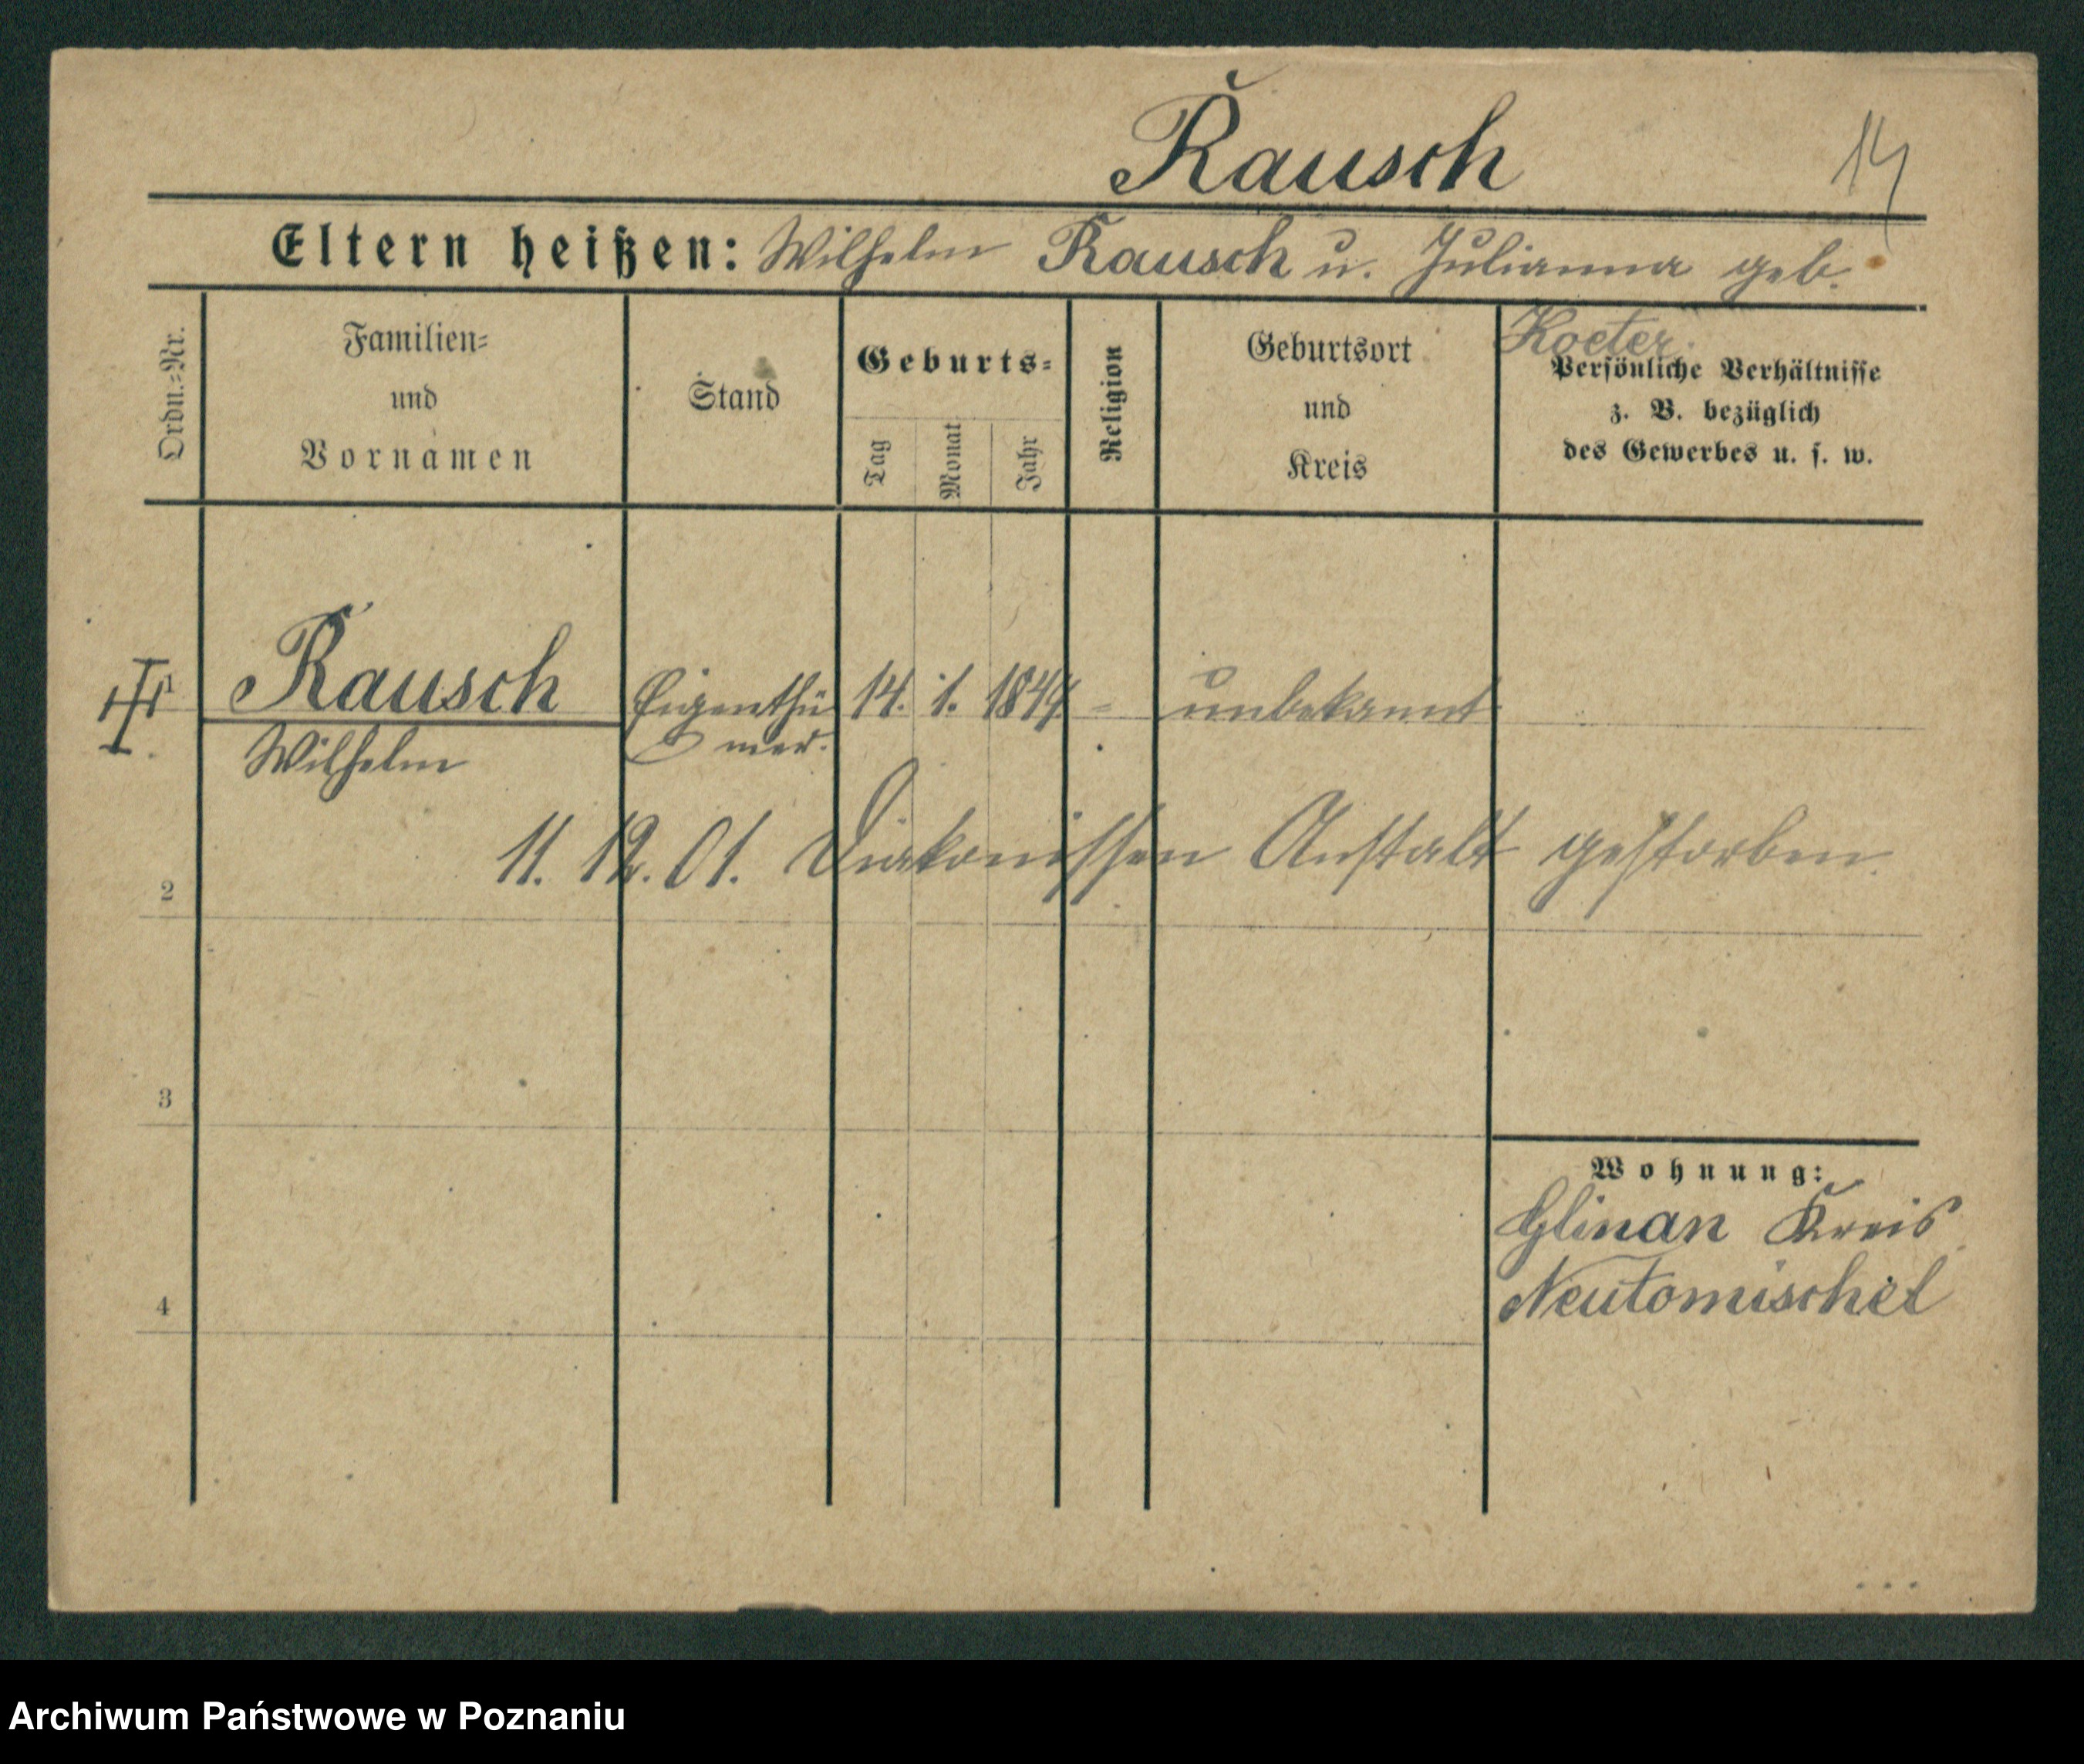 Rausch
14
Eltern heißen: Wilhelm Rausch u. Julianna geb.
Koeter.
Ordn.=Nr.
Familien=
und
Vornamen
Stand
Geburts=
Tag
Monat
Jahr
Religion
Geburtsort
und
Kreis
Persönliche Verhältnisse
z. B. bezüglich
des Gewerbes u. s. w.
1
Rausch Eigenthü 14. 1. 1844 - unbekannt
Wilhelm mer.
11. 12. 01. Diakonissen Anstalt gestorben.
2
3
Wohnung:
Glinan Kreis
Neutomischel
4
Archiwum Państwowe w Poznaniu